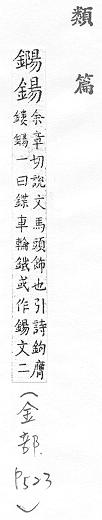 類篇
鐊鍚
余章切說文馬頭飾也引詩鉤膺
鏤鐊一曰鍱車輪鐵或作鍚文二
(金部. P523)